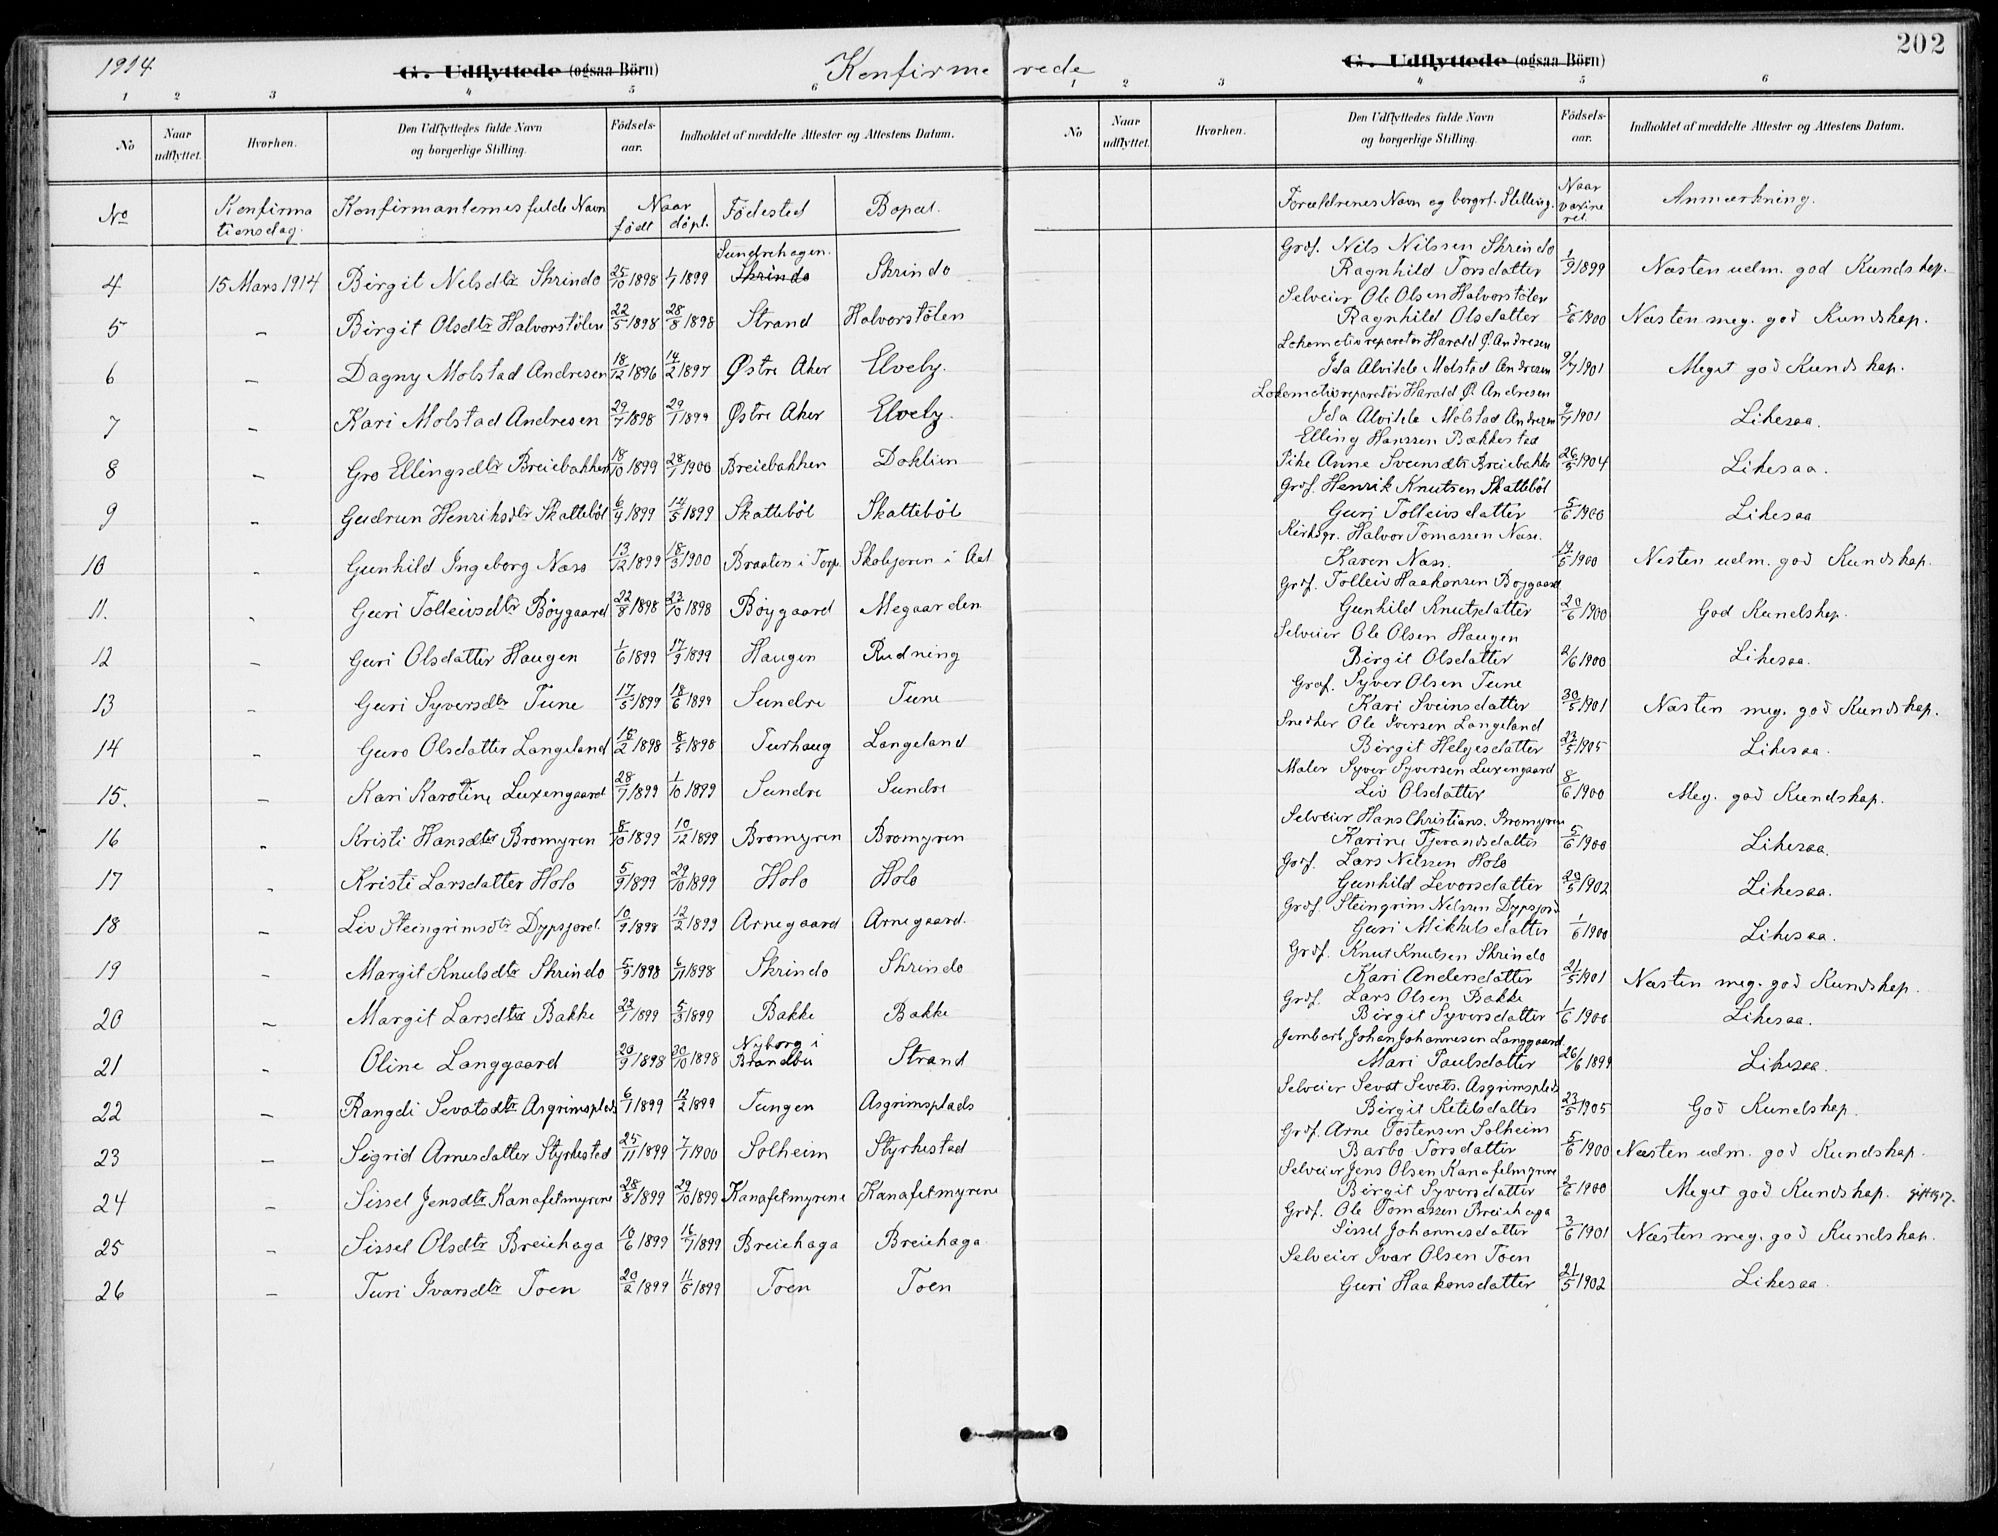 202
1914
G. Udflyttede (ogsaa Börn)
Konfirmerede
G. Udflyttede (ogsaa Börn)
1 2 3 4 5 6 1 2 3 4 5 6
No Naar udflyttet. Hvorhen. Den Udflyttedes fulde Navn og borgerlige Stilling. Födsels-aar. Indholdet af meddelte Attester og Attestens Datum. No Naar udflyttet. Hvorhen. Den Udflyttedes fulde Navn og borgerlige Stilling. Födsels-aar. Indholdet af meddelte Attester og Attestens Datum.
No Konfirmationsdag. Konfirmanternes fulde Navn Naar født døpt. Fødested Bopæl. Forældrenes Navn og borgerl. Stilling. Naar vaxineret. Anmærkning.
4 15 Mars 1914 Birgit Nilsdtr Skrindo 25/10 1898 1/1 1899 Sundrehagen. Skrindo Skrindo Grdf. Nils Nilssen Skrindo Ragnhild Torsdatter 1/9 1899 Næsten udm. god Kundskap.
5 – Birgit Olsdtr Halvorstølen 22/5 1898 28/8 1898 Strand Halvorstølen Selveier Ole Olsen Halvorstølen Ragnhild Olsdatter 5/6 1900 Næsten meg. god Kundskap.
6 – Dagny Molstad Andresen 18/12 1896 14/2 1897 Østre Aker Elveby. Lokomotivreparatør Harald Ø. Andresen Ida Alvilde Molstad Andresen 9/7 1901 Meget god Kundskap.
7 – Kari Molstad Andresen 29/7 1898 29/1 1899 Østre Aker Elveby. Lokomotivreparatør Harald Ø. Andresen Ida Alvilde Molstad Andresen 9/7 1901 Likesaa.
8 – Gro Ellingsdtr Breiebakken 18/10 1899 28/7 1900 Breiebakken Doklien Elling Hanssen Bækkestad Pike Anne Sveinsdtr Breiebakke 26/5 1904 Likesaa.
9 – Gudrun Henriksdtr Skattebøl 6/4 1899 14/5 1899 Skattebøl Skattebøl Grdf. Henrik Knutsen Skattebøl Guri Tolleivsdatter 5/6 1900 Likesaa
10 – Gunhild Ingeborg Næss 13/12 1899 18/3 1900 Braaten i Torpe Skolejoren i Aal Kirksgr. Halvor Tomassen Næss. Karen Næss. 19/5 1900 Næsten udm. god Kundskap.
11. – Guri Tolleivsdtr Bøygaard 22/8 1898 23/10 1898 Bøygaard Megaarden Grdf. Tolleiv Haakonsen Bøygaard Gunhild Knutsdatter 20/6 1900 God Kundskap.
12 – Guri Olsdatter Haugen 1/6 1899 17/9 1899 Haugen Rudning Selveier Ole Olsen Haugen Birgit Olsdatter 2/6 1900 Likesaa.
13 – Guri Syversdtr Tune 17/5 1899 18/6 1899 Sundre Tune Grdf. Syver Olsen Tune Kari Sveinsdatter 30/5 1901 Næsten meg. god Kundskap.
14 – Guro Olsdatter Langeland 15/2 1898 8/5 1898 Turhaug Langeland Snedker Ole Iversen Langeland Birgit Helgesdatter 23/5 1905 Likesaa.
15. – Kari Karoline Luxengaard 28/7 1899 1/10 1899 Sundre Sundre Maler Syver Syversen Luxengaard Liv Olsdatter 8/6 1900 Meg. god Kundskap.
16 – Kristi Hansdtr Bromyren 8/10 1899 10/12 1899 Bromyren Bromyren Selveier Hans Christians. Bromyren Karine Tjerandsdatter 5/6 1900 Likesaa.
17 – Kristi Larsdatter Holo 5/9 1899 29/10 1899 Holo Holo Grdf. Lars Nilssen Holo Gunhild Levorsdatter 20/5 1902 Likesaa.
18 – Liv Steingrimsdtr Dypsjord. 10/9 1898 12/2 1899 Arnegaard Arnegaard. Grdf. Steingrim Nilssen Dypsjord Guri Mikkelsdatter 1/6 1900 Likesaa.
19 – Margit Knutsdtr Skrindo 5/9 1898 6/11 1898 Skrindo Skrindo Grdf. Knut Knutsen Skrindo Kari Andersdatter 21/5 1901 Næsten meg. god Kundskap.
20 – Margit Larsdtr Bakke 23/1 1899 5/3 1899 Bakke Bakke Grdf. Lars Olsen Bakke Birgit Syversdatter 1/6 1900 Likesaa.
21 – Oline Langgaard 20/9 1898 30/10 1898 Nyborg i Brandbu Strand Jernbarb. Johan Johannesen Langgaard Mari Paulsdatter 26/6 1899 Likesaa.
22 – Rangdi Sevatsdtr Asgrimsplads 6/1 1899 12/2 1899 Tungen Asgrimsplads Selveier Sevat Sevats. Asgrimsplads Birgit Ketilsdatter 23/5 1905 God Kundskap.
23 – Sigrid Arnesdatter Styrkestad 25/11 1899 7/1 1900 Solheim Styrkestad Grdf. Arne Tostensen Solheim Barbo Torsdatter 5/6 1900 Næsten udm. god Kundskap.
24 – Sissel Jensdtr Kanafetmyrene 28/8 1899 29/10 1899 Kanafetmyrene Kanafetmyrene Selveier Jens Olsen Kanafetmyrene Birgit Syversdatter 2/6 1900 Meget god Kundskap. gift 1917.
25 – Sissel Olsdtr Breiehaga 10/6 1899 16/7 1899 Breiehaga Breiehaga. Grdf. Ole Tomassen Breiehaga Sissel Johannesdatter 3/6 1901 Næsten meg. god Kundskap.
26 – Turi Ivarsdtr Toen 20/2 1899 11/5 1899 Toen Toen Selveier Ivar Olsen Toen Guri Haakonsdatter 21/5 1902 Likesaa.